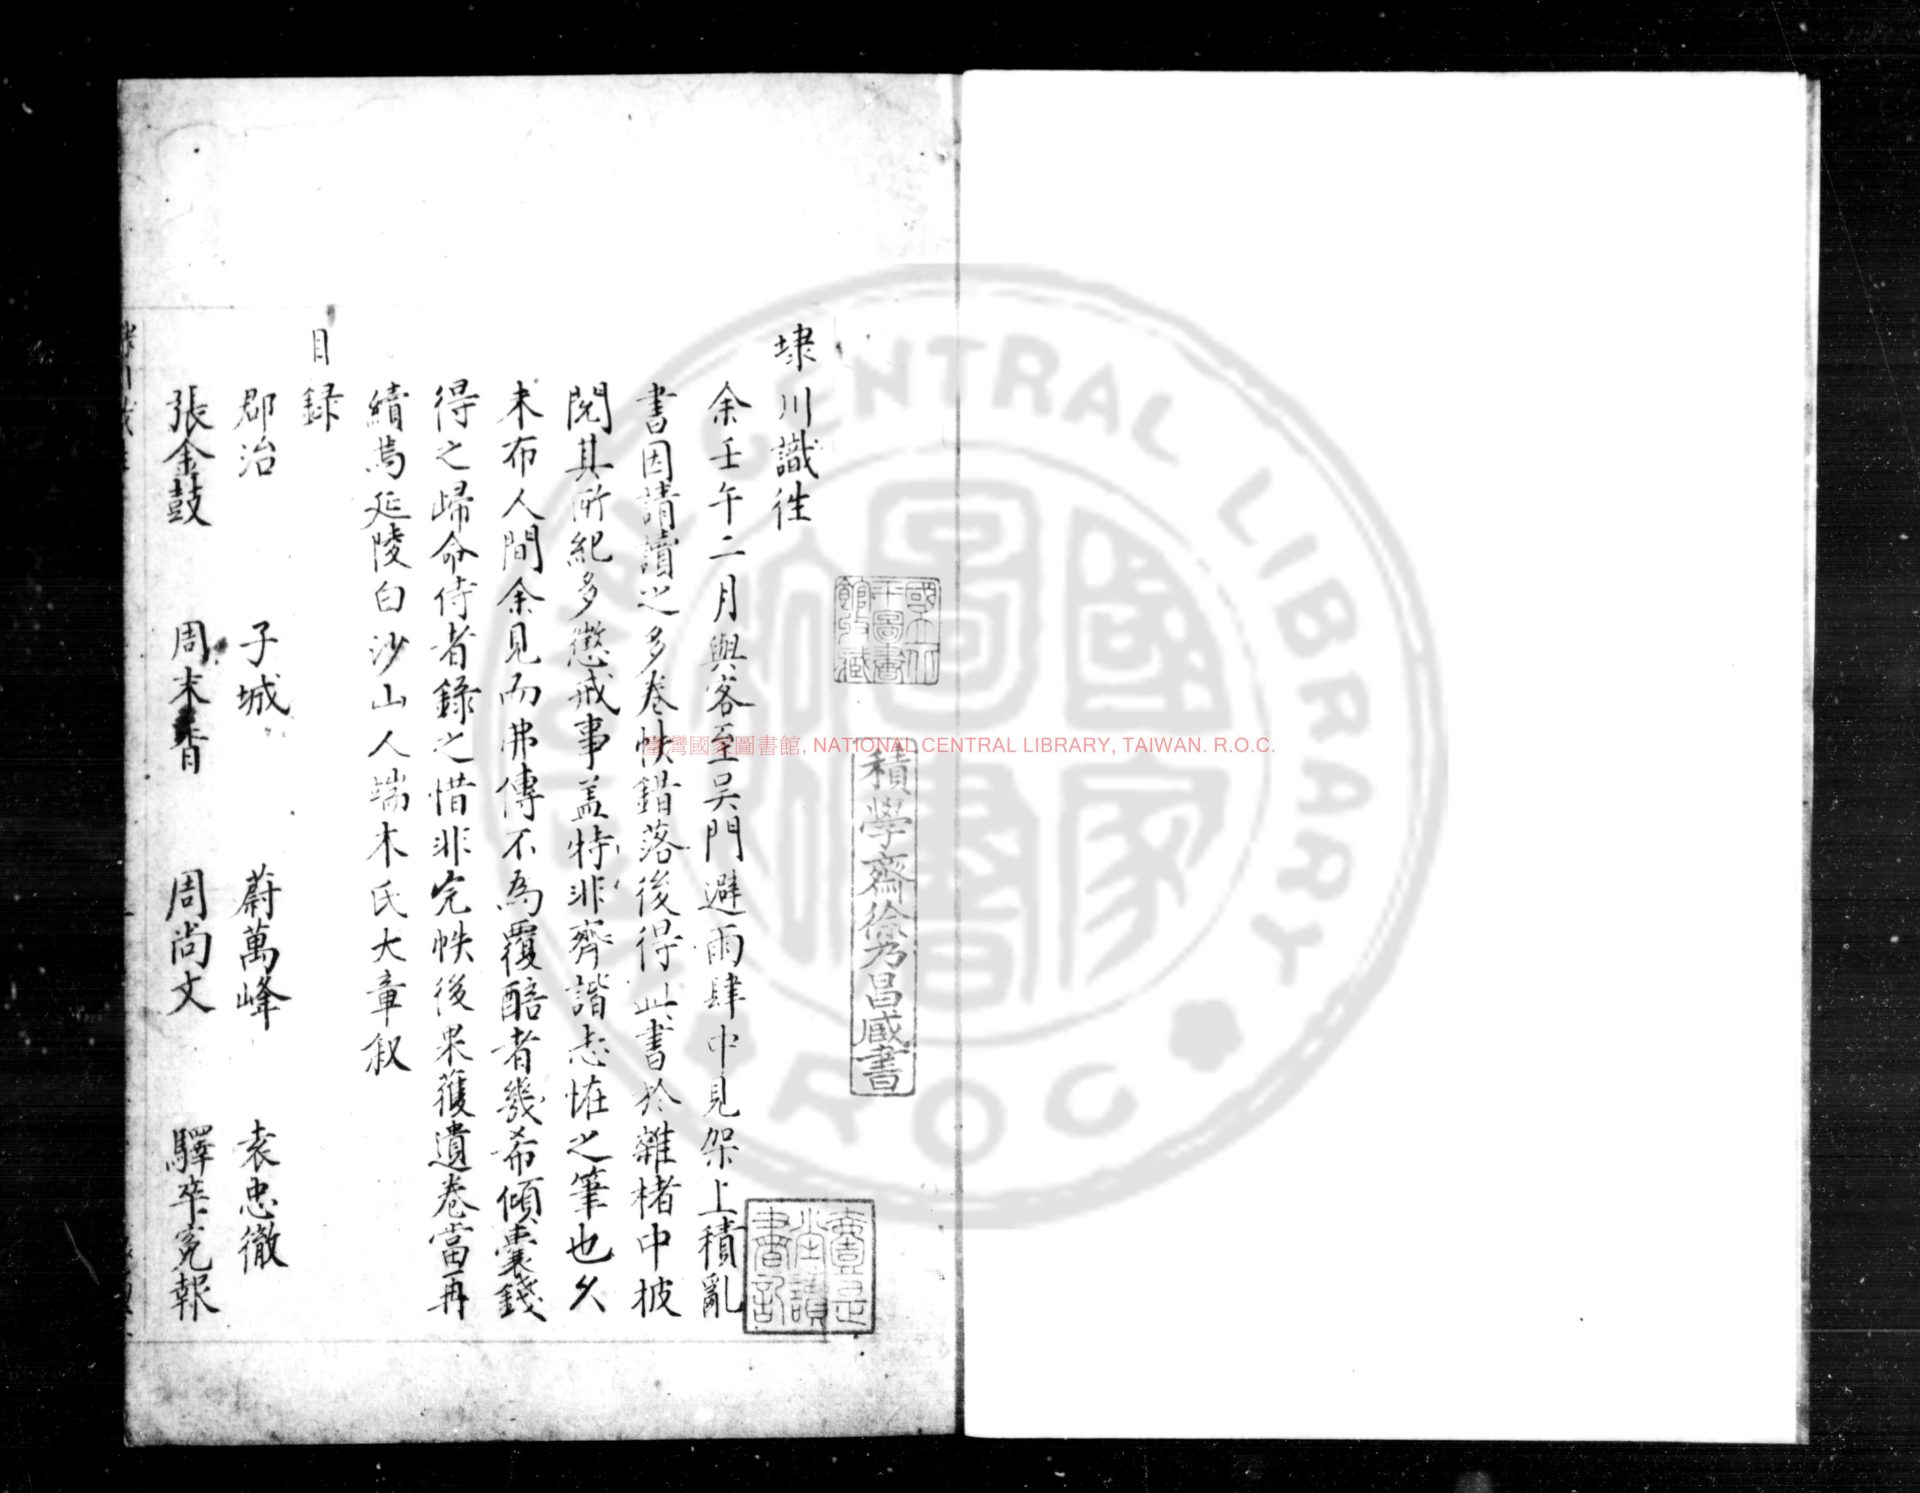 埭川識徃
余壬午二月與客至吴門避雨肆中見架上積亂
書因請讀之多卷帙錯落後得此書於雜楮中披
閱其所紀多懲戒事盖特非齊諧志恠之筆也久
未布人間余見而弗傳不為覆醅者幾希傾囊錢
得之歸命侍者録之惜非完帙後果獲遺卷當再
續焉延陵白沙山人端木氏大章叙
目録
郡治 子城 蔚萬峰 袁忠徹
張金鼓 周末音 周尚文 驛卒寃報
國立中央圖書館收藏
積學齋徐乃昌臧書
臺灣國家圖書館, NATIONAL CENTRAL LIBRARY, TAIWAN. R.O.C.
NATIONAL CENTRAL LIBRARY
R.O.C
國家圖書